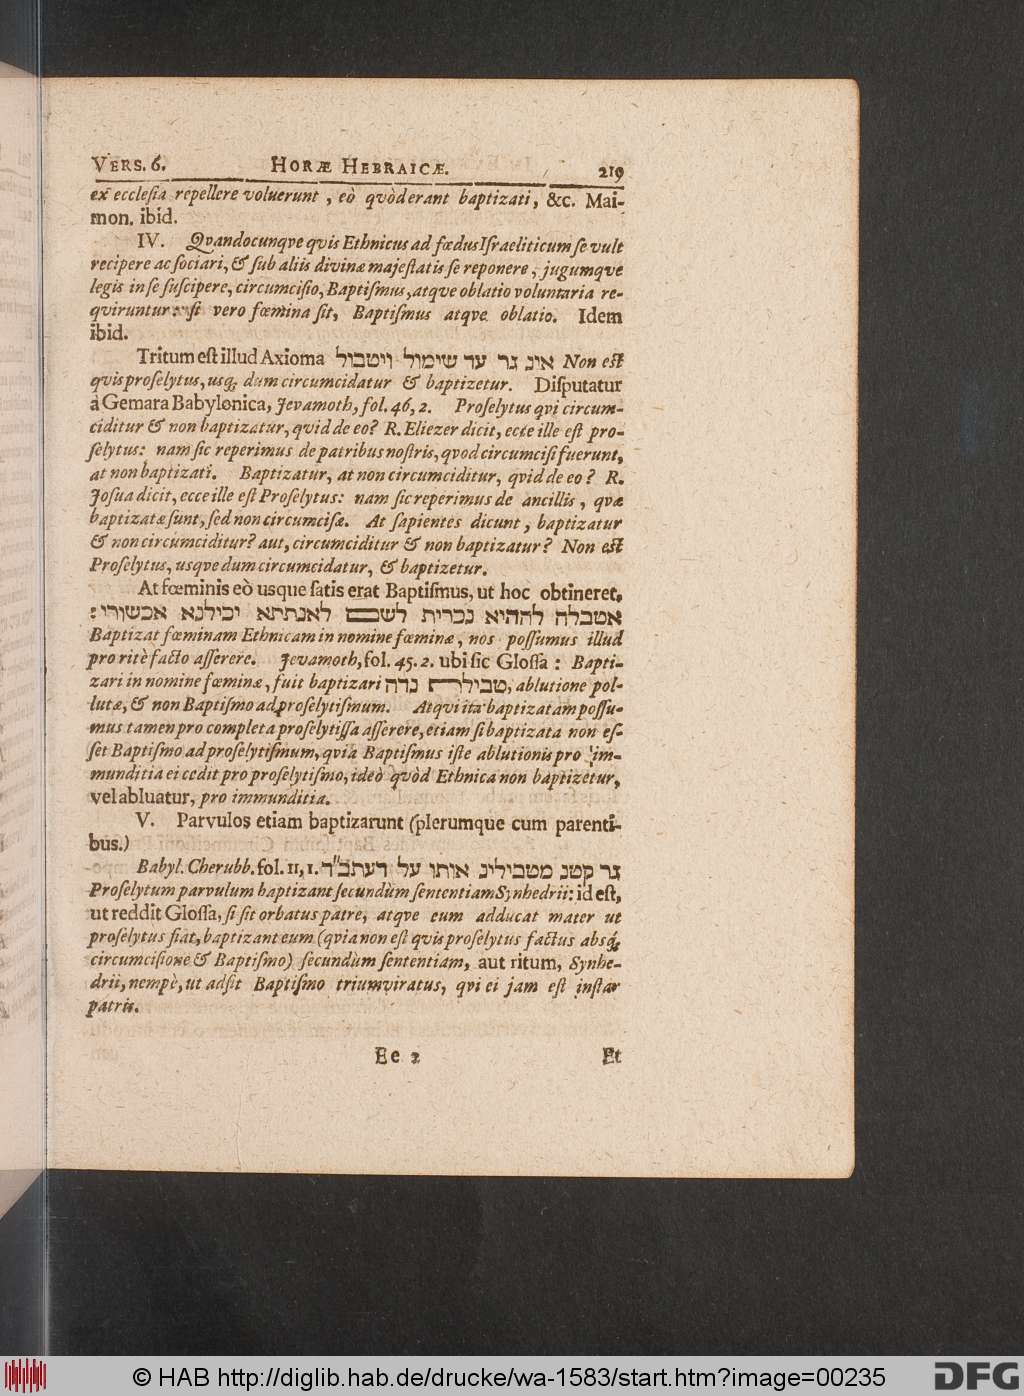 VERS. 6. HORÆ HEBRAICÆ. 219
ex ecclesia repellere voluerunt, eò qvòd erant baptizati, &c. Mai-
mon. ibid.
IV. Qvandocunqve qvis Ethnicus ad fœdus Iſraeliticum ſe vult
recipere ac ſociari, & ſub aliis divinæ majeſtatis ſe reponere, jugumqve
legis in ſe ſuſcipere, circumciſio, Baptiſmus, atqve oblatio voluntaria re-
qviruntur: ſi vero fœmina ſit, Baptiſmus atqve oblatio. Idem
ibid.
Tritum eſt illud Axioma אינ גר עד שימול ויטבול Non eſt
qvis proſelytus, usq; dum circumcidatur & baptizetur. Diſputatur
à Gemara Babylonica, Jevamoth, fol. 46, 2. Proſelytus qvi circum-
ciditur & non baptizatur, qvid de eo? R. Eliezer dicit, ecce ille eſt pro-
ſelytus: nam ſic reperimus de patribus noſtris, qvod circumciſi fuerunt,
at non baptizati. Baptizatur, at non circumciditur, qvid de eo? R.
Joſua dicit, ecce ille eſt Proſelytus: nam ſic reperimus de ancillis, qvæ
baptizatæ ſunt, ſed non circumciſæ. At ſapientes dicunt, baptizatur
& non circumciditur? aut, circumciditur & non baptizatur? Non eſt
Proſelytus, usqve dum circumcidatur, & baptizetur.
At fœminis eò usque ſatis erat Baptiſmus, ut hoc obtineret,
אטבלה לההיא נכרית לשם לאנתתא יכילנא אכשורי:
Baptizat fœminam Ethnicam in nomine fœminæ, nos poſſumus illud
pro ritè facto aſſerere. Jevamoth, fol. 45. 2. ubi ſic Gloſſa: Bapti-
zari in nomine fœminæ, fuit baptizari טבילת נדה, ablutione pol-
lutæ, & non Baptiſmo ad proſelytiſmum. Atqvi ita baptizatam poſſu-
mus tamen pro completa proſelytiſſa aſſerere, etiam ſi baptizata non eſ-
ſet Baptiſmo ad proſelytiſmum, qvia Baptiſmus iſte ablutionis pro im-
munditia ei cedit pro proſelytiſmo, ideò qvòd Ethnica non baptizetur,
vel abluatur, pro immunditia.
V. Parvulos etiam baptizarunt (plerumque cum parenti-
bus.)
Babyl. Cherubb. fol. 11, 1. גר קטנ מטבילינ אותו על דעתב"ד
Proſelytum parvulum baptizant ſecundùm ſententiam Synhedrii: id eſt,
ut reddit Gloſſa, ſi ſit orbatus patre, atqve eum adducat mater ut
proſelytus fiat, baptizant eum (qvia non eſt qvis proſelytus factus absq;
circumciſione & Baptiſmo) ſecundùm ſententiam, aut ritum, Synhe-
drii, nempè, ut adſit Baptiſmo triumviratus, qvi ei jam eſt inſtar
patris.
Ee 2 Et
© HAB http://diglib.hab.de/drucke/wa-1583/start.htm?image=00235
DFG